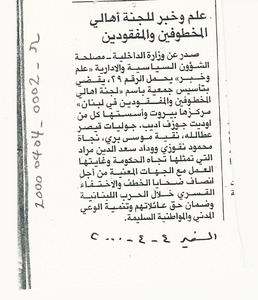 علم وخبر للجنة أهالي
المخطوفين والمفقودين
صدر عن وزارة الداخلية - مصلحة
الشؤون السياسية والادارية «علم
وخبر» يحمل الرقم ٢٩، يقضي
بتأسيس جمعية باسم «لجنة اهالي
المخطوفين والمفقودين في لبنان»
مركزها بيروت وأسستها كل من
اوديت جوزف اديب، جوليات قيصر
عطالله، نقية موسى بري، نجاة
محمود نقوزي ووداد سعد الدين مراد
التي تمثلها تجاه الحكومة وغايتها
العمل مع الجهات المعنية من أجل
انصاف ضحايا الخطف والاختفاء
القسري خلال الحرب اللبنانية
وضمان حق عائلاتهم وتنمية الوعي
المدني والمواطنية السليمة.
السفير ٤-٤-٢٠٠٠
20000404-0002-